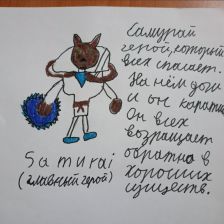 Самурай
герой, который
всех спасает.
На нём доги
и он каратист
Он всех
возращает
обратно в
хороших
существ.
Samurai
(главный герой)